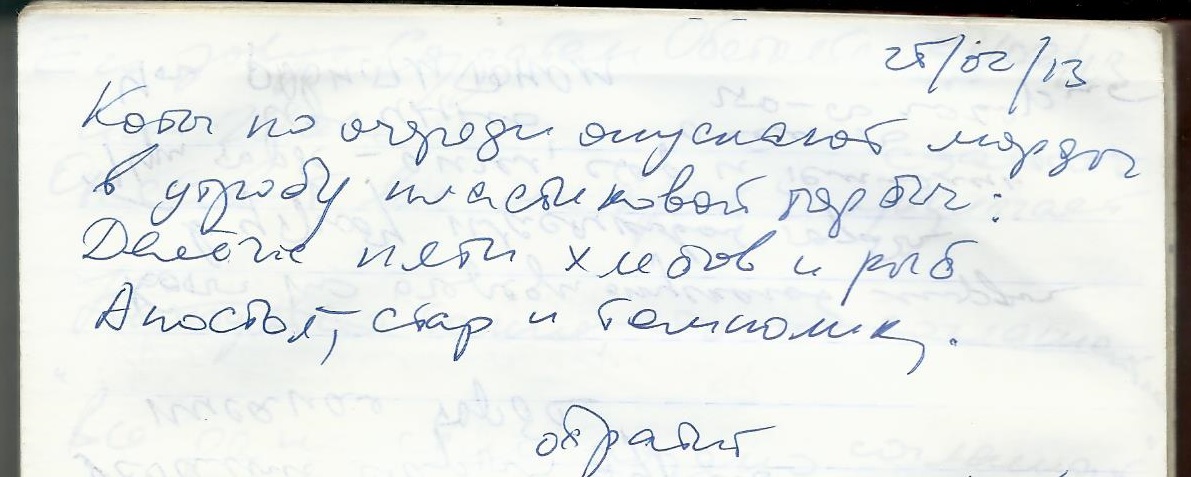 25/02/13
Коты по очереди опускают морды
в утробу пластиковой торбы:
Деление пяти хлебов и рыб
Апостол, стар и темнолик,.